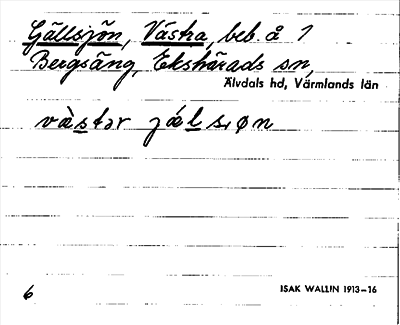 Gällsjön, Västra, beb. å 1
Bergsäng, Ekshärads sn,
Älvdals hd, Värmlands län
vàstər jǽlsıøn
6
ISAK WALLIN 1913-16